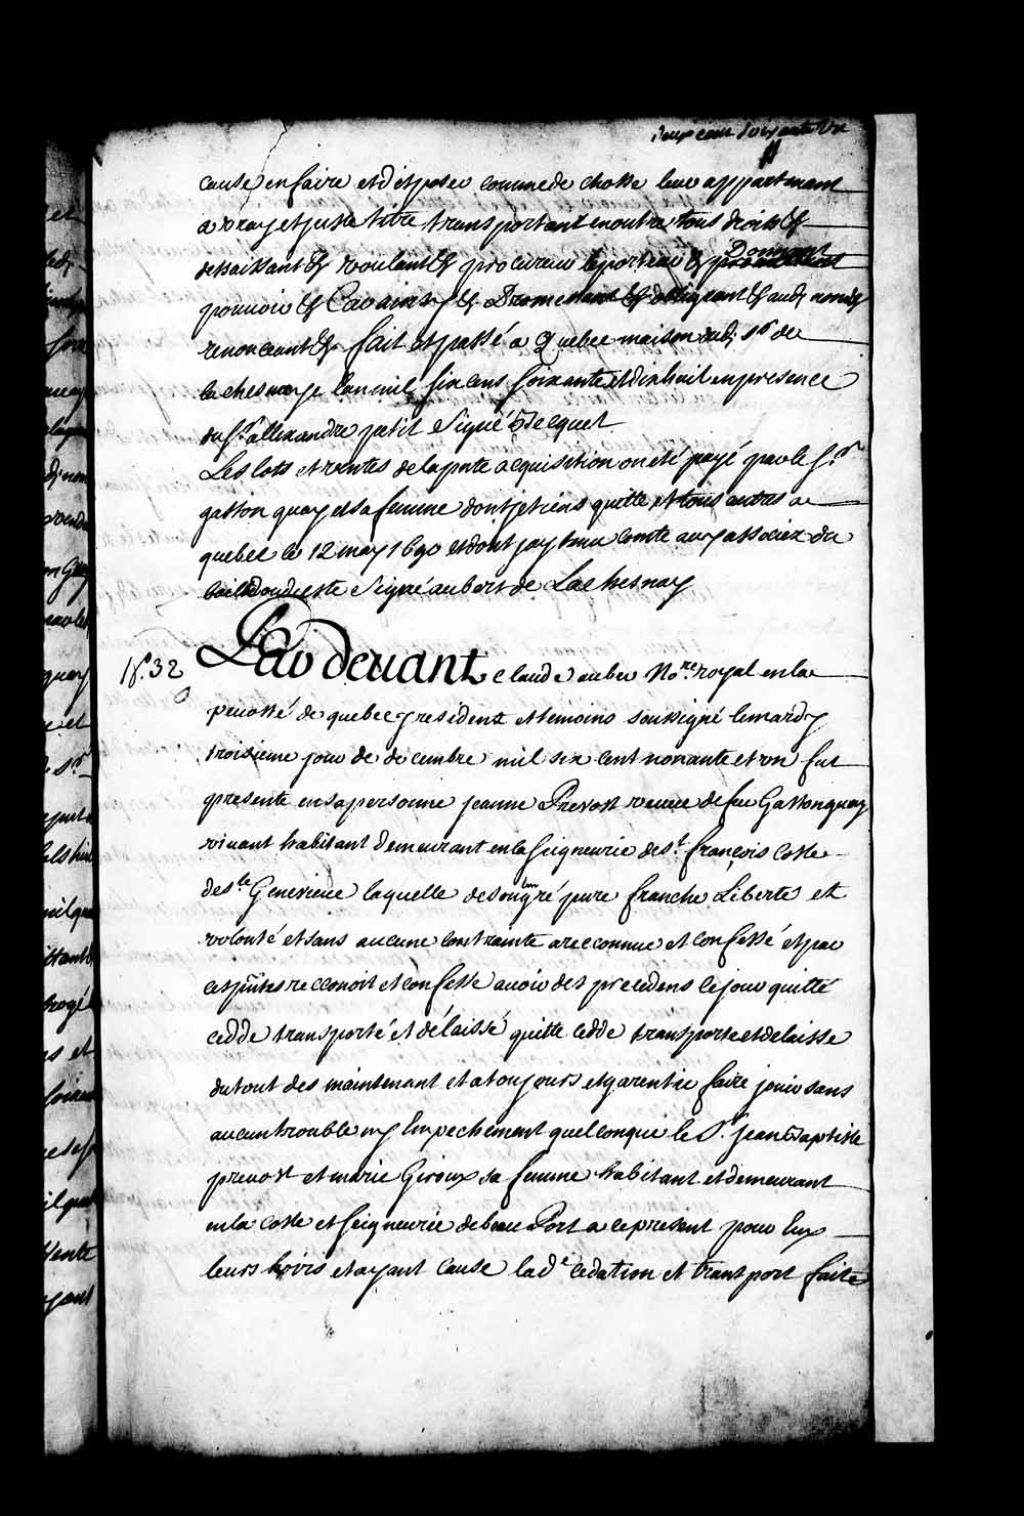 deux cent soixante Un
cause en faire et disposer comme de chosse leur appartenant
a vray et juste titre, transportant en outre tous droits &
dessaissant & voulant & procureur le porteur & Donnant
pouvoir & Car ainsy & Promettant & obligeant & aud, nom &
renonceant & fait et passé a Quebec maison dud, Sr de
la chesnaye lan mil six cens soixante et dix huit en presence
du Sr allexandre petit Signé Becquet
Les lots et ventes de la pnte acquisition on eté payé par le Sr
gasson quay et sa femme dont je tiens quitte et tous autres a
quebec le 12 may 1690 et dont jay tenu comte aux associez du
bail Signé aubert de Lachesnay
No. 32 Par devant Claude auber Nore royal en la
prevosté de quebec y resident et temoins soussigné le mardy
troisieme jour de decembre mil six cent nonante et un fut
presente en sa personne jeanne Prevost veuve de feu Gasson quay
vivant habitant demeurant en la seigneurie de St françois Coste
de Ste Genevieve laquelle de son bon gré pure franche Liberté et
volonté et sans aucune contrainte a reconnue et confessé et par
ces pntes reconoit et confesse avoir des precedens ce jour quitté
cedde transporté et délaissé quitte cedde transporte et delaisse
du tout des maintenant et a toujours et garentir faire jouir sans
aucun trouble ny Empechement quelconque le Sr. jean Baptiste
prevost et marie Giroux sa femme habitant et demeurant
en la coste et seigneurie de beau Port a ce present pour Eux
leurs hoirs et ayant cause lade cedation et transport faite